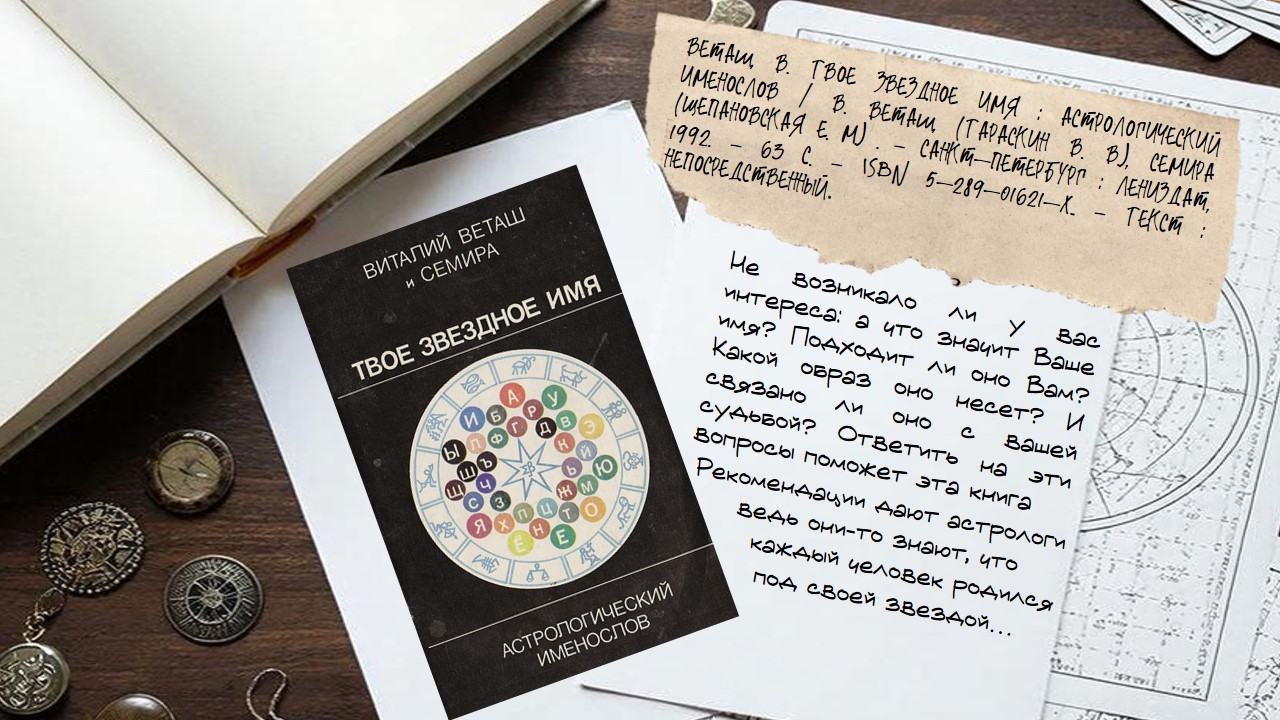 ВЕТАШ, В. ТВОЕ ЗВЕЗДНОЕ ИМЯ : АСТРОЛОГИЧЕСКИЙ
ИМЕНОСЛОВ / В. ВЕТАШ (ТАРАСКИН В. В), СЕМИРА
(ЩЕПАНОВСКАЯ Е. М) . – САНКТ–ПЕТЕРБУРГ : ЛЕНИЗДАТ,
1992. – 63 С. – ISBN 5–289–01621–Х. – ТЕКСТ :
НЕПОСРЕДСТВЕННЫЙ.
ВИТАЛИЙ ВЕТАШ
и СЕМИРА
ТВОЕ ЗВЕЗДНОЕ ИМЯ
АСТРОЛОГИЧЕСКИЙ
ИМЕНОСЛОВ
Не возникало ли у вас
интереса: а что значит Ваше
имя? Подходит ли оно Вам?
Какой образ оно несет? И
связано ли оно с вашей
судьбой? Ответить на эти
вопросы поможет эта книга
Рекомендации дают астрологи
ведь они-то знают, что
каждый человек родился
под своей звездой...